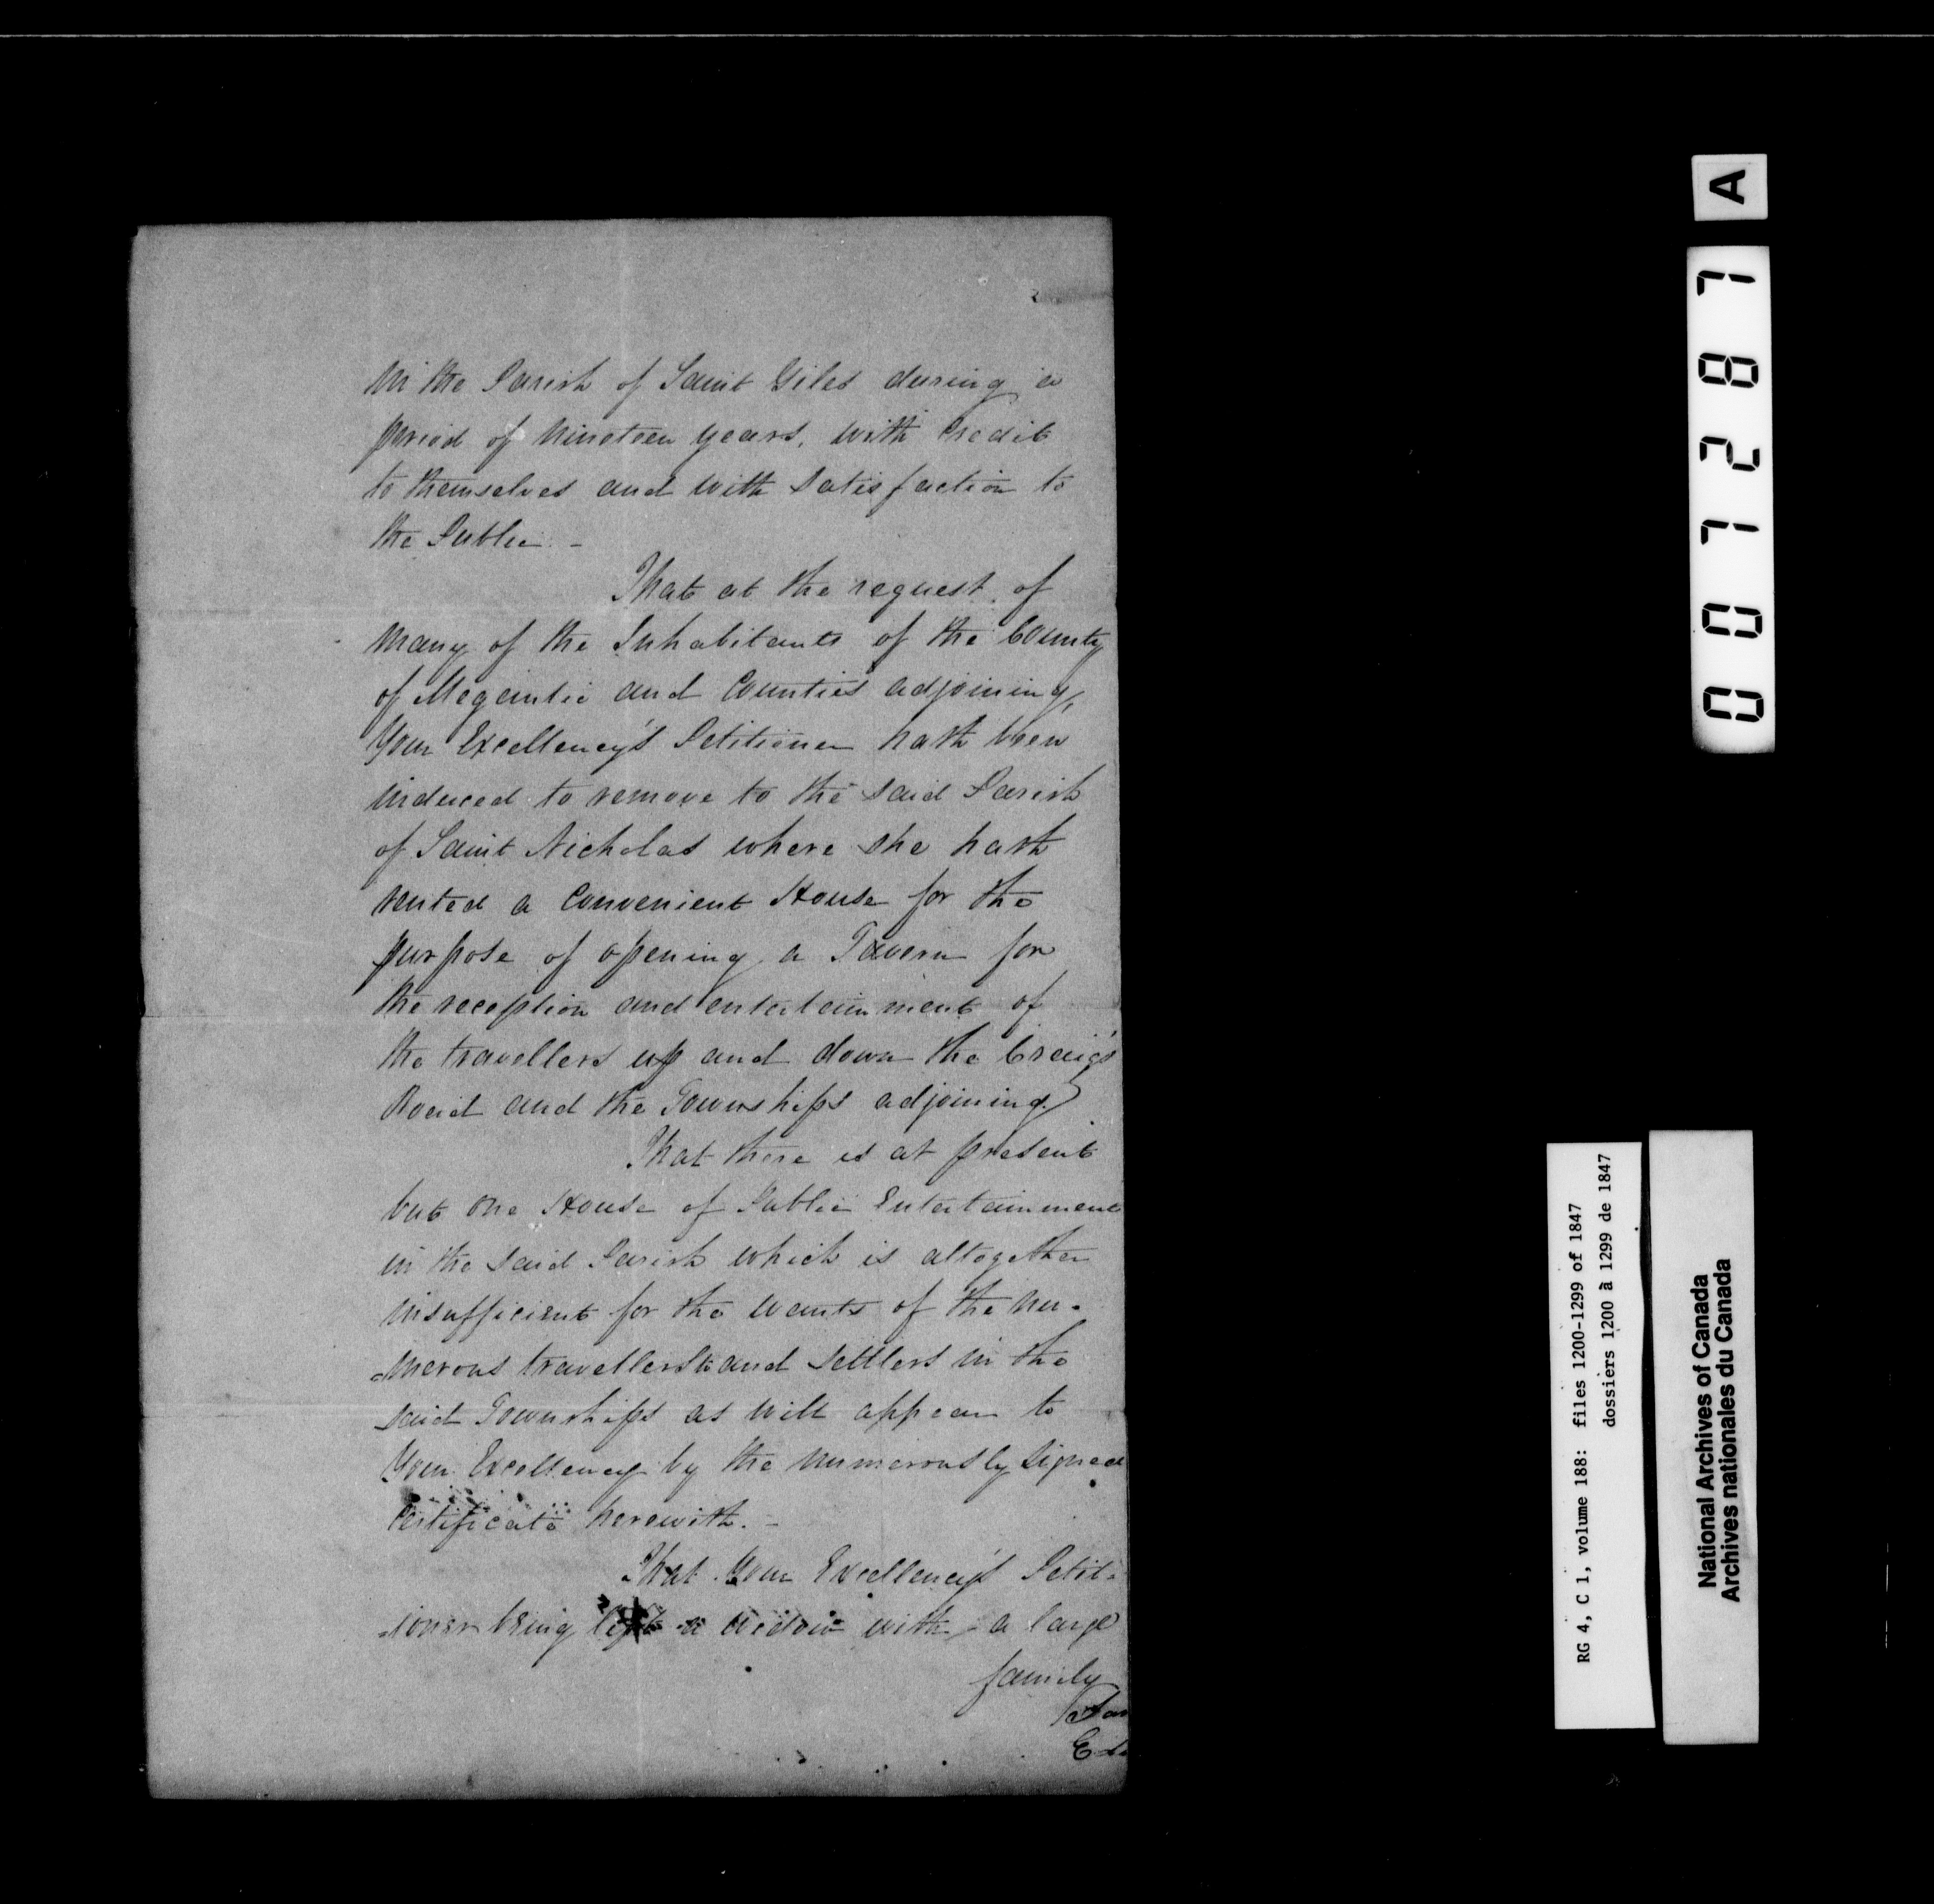 in the Parish of Saint Giles during a
period of nineteen years, with Credit
to themselves and with Satisfaction to
the Public. -
That at the request of
many of the Inhabitants of the County
of Megantic and Counties adjoining,
Your Excellency's Petitioner hath been
induced to remove to the said Parish
of Saint Nicholas where she hath
rented a Convenient House for the
purpose of opening a Tavern for
the reception and entertainment of
the travellers up and down the Craig's
Road and the Townships adjoining.
That there is at present
but one House of Public Entertainment
in the said Parish which is altogether
insufficient for the wants of the nu-
-merous travellers and Settlers in the
said Townships as will appear to
Your Excellency by the numerously signed
Certificate herewith. -
That Your Excellency's Petit-
-ioner being left a widow with a large
family
A
007287
RG 4, C 1, volume 188: files 1200-1299 of 1847
dossiers 1200 à 1299 de 1847
National Archives of Canada
Archives nationales du Canada